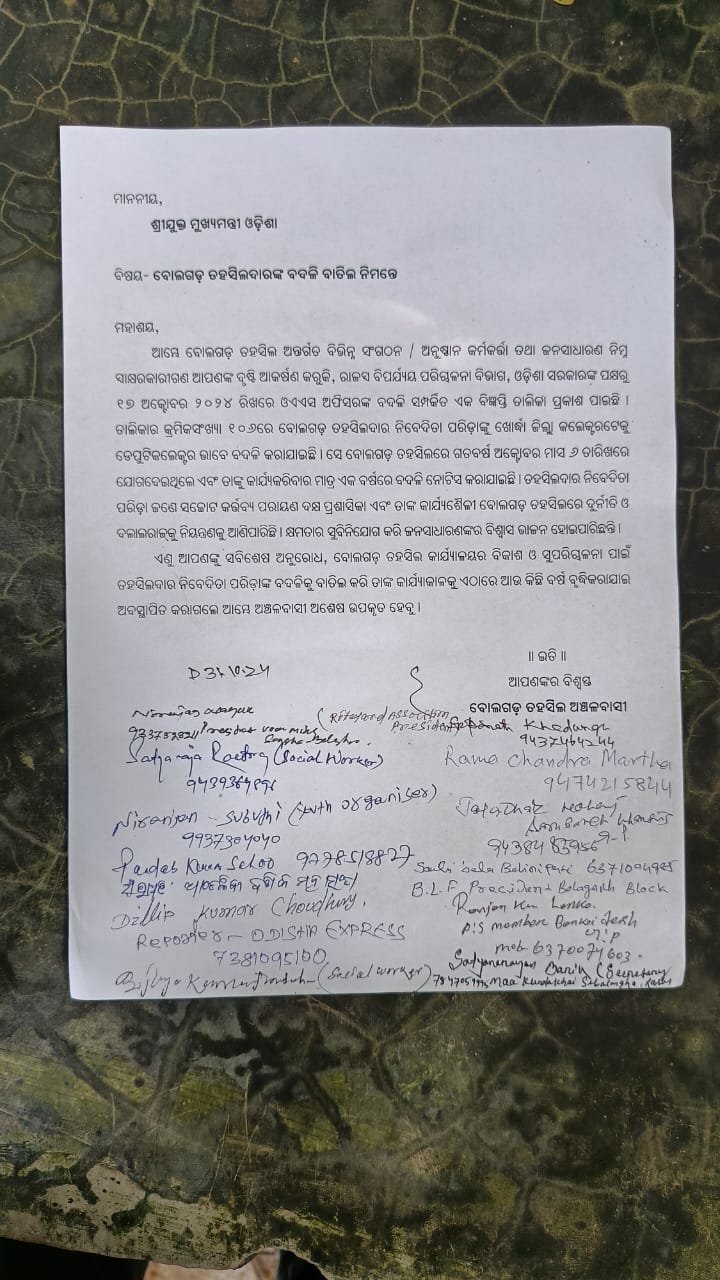 ମାନନୀୟ,
ଶ୍ରୀଯୁକ୍ତ ମୁଖ୍ୟମନ୍ତ୍ରୀ ଓଡ଼ିଶା
ବିଷୟ- ବୋଲଗଡ଼ ତହସିଲଦାରଙ୍କ ବଦଳି ବାତିଲ ନିମନ୍ତେ
ମହାଶୟ,
ଆମ୍ଭେ ବୋଲଗଡ଼ ତହସିଲ ଅନ୍ତର୍ଗତ ବିଭିନ୍ନ ସଂଗଠନ / ଅନୁଷ୍ଠାନ କର୍ମକର୍ତ୍ତା ତଥା ଜନସାଧାରଣ ନିମ୍ନ
ସ୍ୱାକ୍ଷରକାରୀଗଣ ଆପଣଙ୍କ ଦୃଷ୍ଟି ଆକର୍ଷଣ କରୁକି, ରାଜସ ବିପର୍ଯ୍ୟୟ ପରିଚାଳନା ବିଭାଗ, ଓଡ଼ିଶା ସରକାରଙ୍କ ପକ୍ଷରୁ
୧୭ ଅକ୍ଟୋବର ୨୦୨୪ ରିଖରେ ଓଏଏସ ଅଫିସରଙ୍କ ବଦଳି ସମ୍ପର୍କିତ ଏକ ବିଜ୍ଞପ୍ତି ତାଲିକା ପ୍ରକାଶ ପାଇଛି ।
ତାଲିକାର କ୍ରମିକସଂଖ୍ୟା ୧୦୬ରେ ବୋଲଗଡ଼ ତହସିଲଦାର ନିବେଦିତା ପରିଡ଼ାଙ୍କୁ ଖୋର୍ଦ୍ଧା ଜିଲ୍ଲା କଲେକ୍ଟରଟେକୁ
ଡେପୁଟିକଲେକ୍ଟର ଭାବେ ବଦଳି କରାଯାଇଛି । ସେ ବୋଲଗଡ଼ ତହସିଲରେ ଗତବର୍ଷ ଅକ୍ଟୋବର ମାସ ୬ ତାରିଖରେ
ଯୋଗଦେଇଥିଲେ ଏବଂ ତାଙ୍କୁ କାର୍ଯ୍ୟକରିବାର ମାତ୍ର ଏକ ବର୍ଷରେ ବଦଳି ନୋଟିସ କରାଯାଇଛି । ତହସିଲଦାର ନିବେଦିତା
ପରିଡ଼ା ଜଣେ ସଚ୍ଚୋଟ କର୍ତ୍ତବ୍ୟ ପରାୟଣ ଦକ୍ଷ ପ୍ରଶାସିକା ଏବଂ ତାଙ୍କ କାର୍ଯ୍ୟଶୈଳୀ ବୋଲଗଡ଼ ତହସିଲରେ ଦୁର୍ନୀତି ଓ
ଦଲାଲରାଜକୁ ନିୟନ୍ତ୍ରଣକୁ ଆଣିପାରିଛି । କ୍ଷମତାର ସୁବିନିଯୋଗ କରି ଜନସାଧାରଣଙ୍କର ବିଶ୍ୱାସ ଭାଜନ ହୋଇପାରିଛନ୍ତି ।
ଏଣୁ ଆପଣଙ୍କୁ ସବିଶେଷ ଅନୁରୋଧ, ବୋଲଗଡ଼ ତହସିଲ କାର୍ଯ୍ୟାଳୟର ବିକାଶ ଓ ସୁପରିଚାଳନା ପାଇଁ
ତହସିଲଦାର ନିବେଦିତା ପରିଡ଼ାଙ୍କ ବଦଳିକୁ ବାତିଲ କରି ତାଙ୍କ କାର୍ଯ୍ୟକାଳକୁ ଏଠାରେ ଆଉ କିଛି ବର୍ଷ ବୃଦ୍ଧିକରାଯାଇ
ଅବସ୍ଥାପିତ କରାଗଲେ ଆମ୍ଭେ ଅଞ୍ଚଳବାସୀ ଅଶେଷ ଉପକୃତ ହେବୁ ।
॥ ଇତି ॥
ଆପଣଙ୍କର ବିଶ୍ୱସ୍ତ
ବୋଲଗଡ଼ ତହସିଲ ଅଞ୍ଚଳବାସୀ
President
9437464244
(Social Worker)
Rama Chandra Martha
9474215844
Niranjan Subudhi (Youth organiser)
9937304040
9778518827
6371094985
B.L.F President Bolagarh Block
Dillip Kumar Choudhury,
Reporter - ODISHA EXPRESS
7381095100
Ranjan Ku Lenka.
P.S member
mob 6370074603.
(Social worker)
Satyanarayan (Secretary